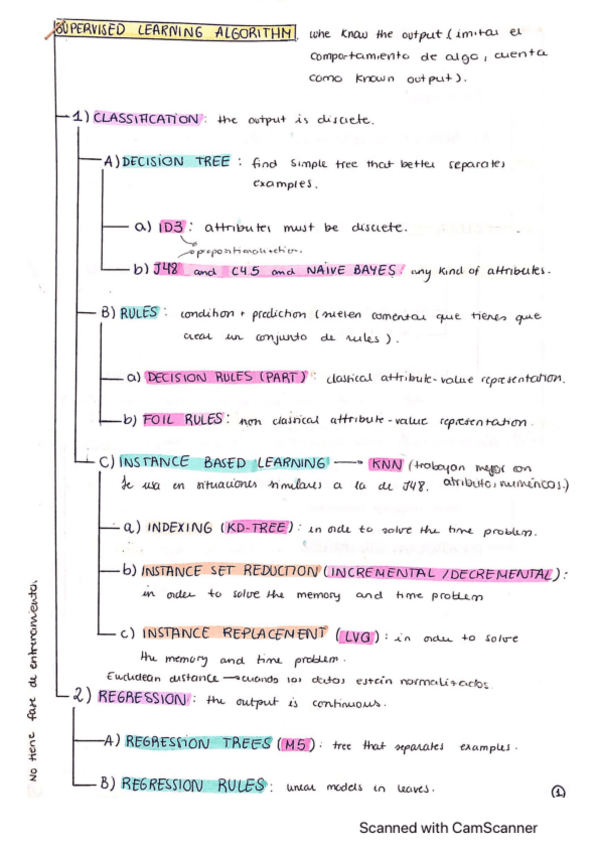 SUPERVISED LEARNING ALGORITHM whe know the output (imitar el
comportamiento de algo, cuenta
como known output).
1) CLASSIFICATION: the output is discrete.
A) DECISION TREE: find simple tree that better separates
examples.
a) ID3: attributes must be discrete.
b) J48 and C4.5 and NAIVE BAYES: any kind of attributes.
B) RULES: condition + prediction (suelen comentar que tienes que
crear un conjunto de rules).
a) DECISION RULES (PART): classical attribute-value representation.
b) FOIL RULES: non classical attribute-value representation.
C) INSTANCE BASED LEARNING → KNN (trabajan mejor con
Se usa en situaciones similares a la de J48. atributos numéricos.)
a) INDEXING (KD-TREE): in orde to solve the time problem.
b) INSTANCE SET REDUCTION (INCREMENTAL / DECREMENTAL):
in order to solve the memory and time problem
c) INSTANCE REPLACEMENT (LVQ): in order to solve
the memory and time problem.
Euclidean distance → cuando los datos estein normalizados.
2) REGRESSION: the output is continuous.
A) REGRESSION TREES (M5): tree that separates examples.
B) REGRESSION RULES: linear models in leaves.
No tiene fase de entrenamiento.
1
Scanned with CamScanner